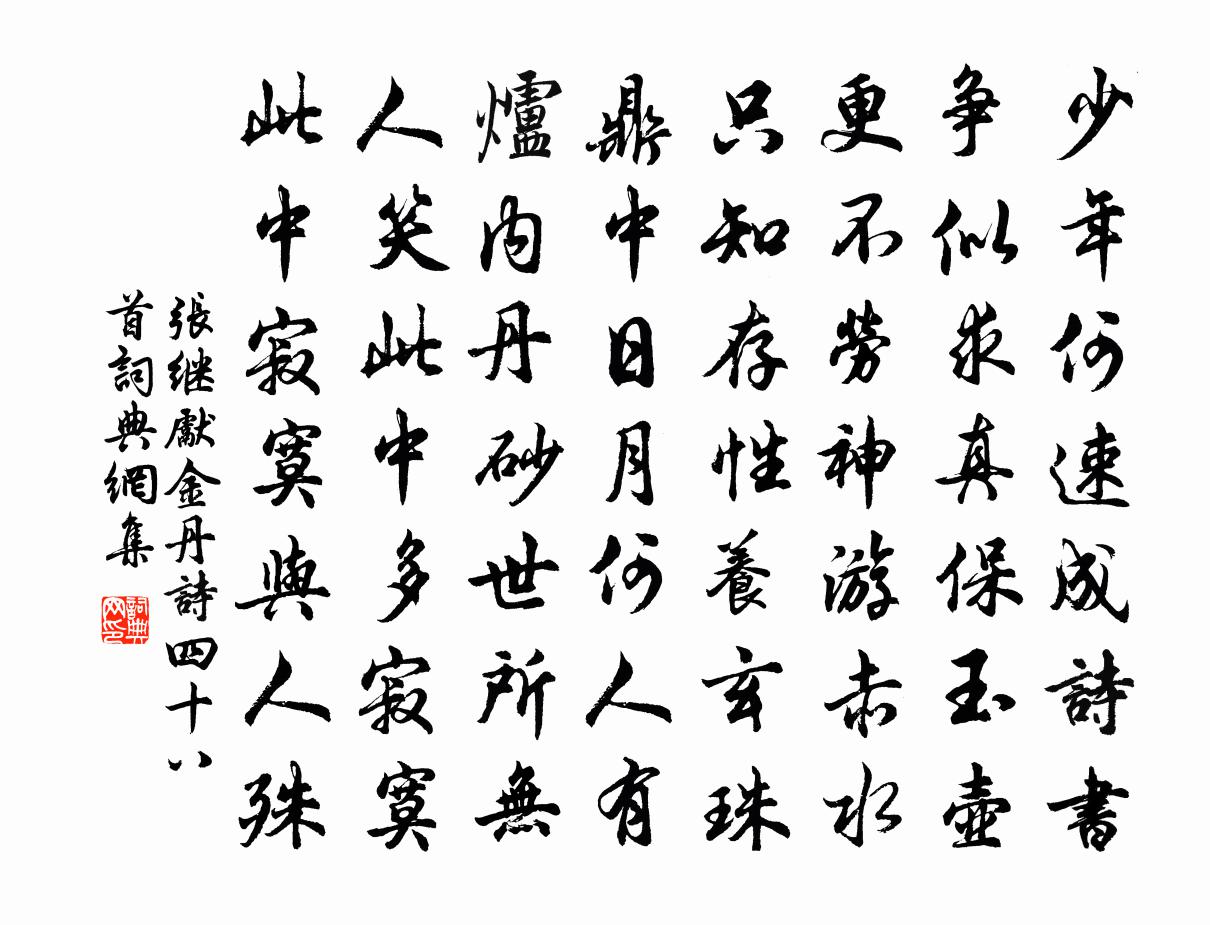 少年何速成詩書
争似求真保玉壺
更不勞神游赤水
只知存性養玄珠
鼎中日月何人有
爐内丹砂世所無
人笑此中多寂寞
此中寂寞與人殊
張继獻金丹詩四十八
首詞典網集
詞典
网印